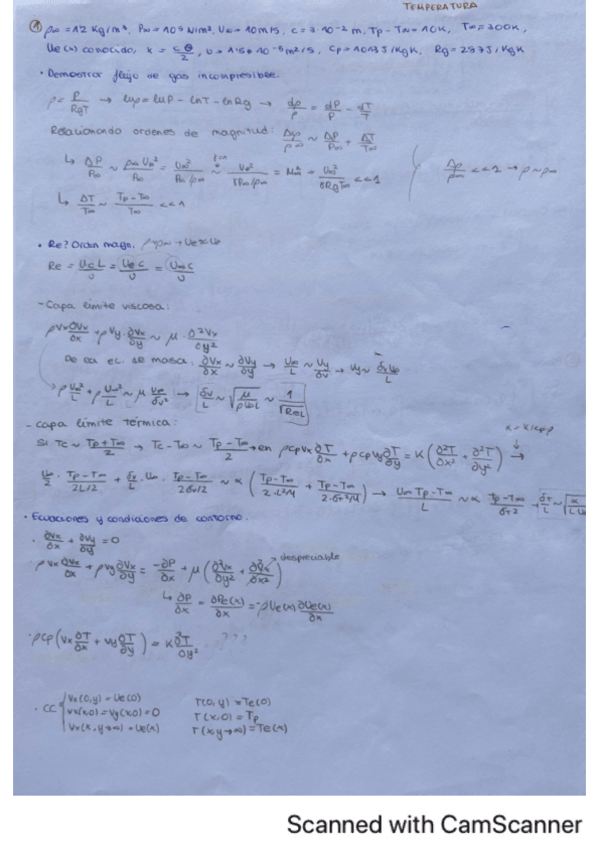 TEMPERATURA
① ρ∞ = 1.2 Kg/m³, P∞ = 10⁵ N/m², U∞ = 10m/s, c = 3·10⁻² m, Tp - T∞ = 10K, T∞ = 300K,
Ue(x) conocido, x = cθ/2, υ = 1'5·10⁻⁵ m²/s, Cp = 1013 J/KgK, Rg = 287 J/KgK
• Demostrar flujo de gas incompresible.
ρ = P/RgT → lnρ = lnP - lnT - lnRg → dρ/ρ = dP/P - dT/T
Relacionando ordenes de magnitud: Δρ/ρ∞ ~ ΔP/P∞ + ΔT/T∞
↳ ΔP/P∞ ~ ρ∞U∞²/P∞ = U∞²/P∞/ρ∞ ~ U∞²/γP∞/ρ∞ = M∞² = U∞²/γRgT∞ <<1
Δρ/ρ∞ <<1 → ρ~ρ∞
↳ ΔT/T∞ ~ Tp-T∞/T∞ <<1
• Re? Orden magn. ρ~ρ∞ → Ue≈U∞
Re = UcL/υ = Uec/υ = U∞c/υ
- Capa límite viscosa:
ρVx ∂Vx/∂x + ρVy ∂Vx/∂y ~ μ ∂²Vx/∂y²
De ca ec. de masa: ∂Vx/∂x ~ ∂Vy/∂y → U∞/L ~ Vy/δv → Vy ~ δv U∞/L
ρ U∞²/L + ρ U∞²/L ~ μ U∞/δv² → δv/L ~ √(μ/ρU∞L) ~ 1/√ReL
- Capa límite térmica:
α = K/ρcp
Si Tc ~ Tp+T∞/2 → Tc-T∞ ~ Tp-T∞/2 → en ρcpVx ∂T/∂x + ρcpVy ∂T/∂y = K(∂²T/∂x² + ∂²T/∂y²) →
U∞/2 · Tp-T∞/2L/2 + δT/L · U∞ · Tp-T∞/2δT/2 ~ α(Tp-T∞/2·L²/4 + Tp-T∞/2·δT²/4) → U∞ Tp-T∞/L ~ α Tp-T∞/δT² → δT/L ~ √
• Ecuaciones y condiciones de contorno.
· ∂Vx/∂x + ∂Vy/∂y = 0
· ρVx ∂Vx/∂x + ρVy ∂Vx/∂y = -∂P/∂x + μ(∂²Vx/∂y² + ∂²Vx/∂x²) → despreciable
↳ ∂P/∂x = ∂Pe(x)/∂x = -ρUe(x) ∂Ue(x)/∂x
· ρcp(Vx ∂T/∂x + Vy ∂T/∂y) = K ∂²T/∂y² ???
· CC { Vx(0,y) = Ue(0) T(0,y) = Te(0)
Vx(x,0) = Vy(x,0) = 0 T(x,0) = Tp
Vx(x,y→∞) = Ue(x) T(x,y→∞) = Te(x)
Scanned with CamScanner